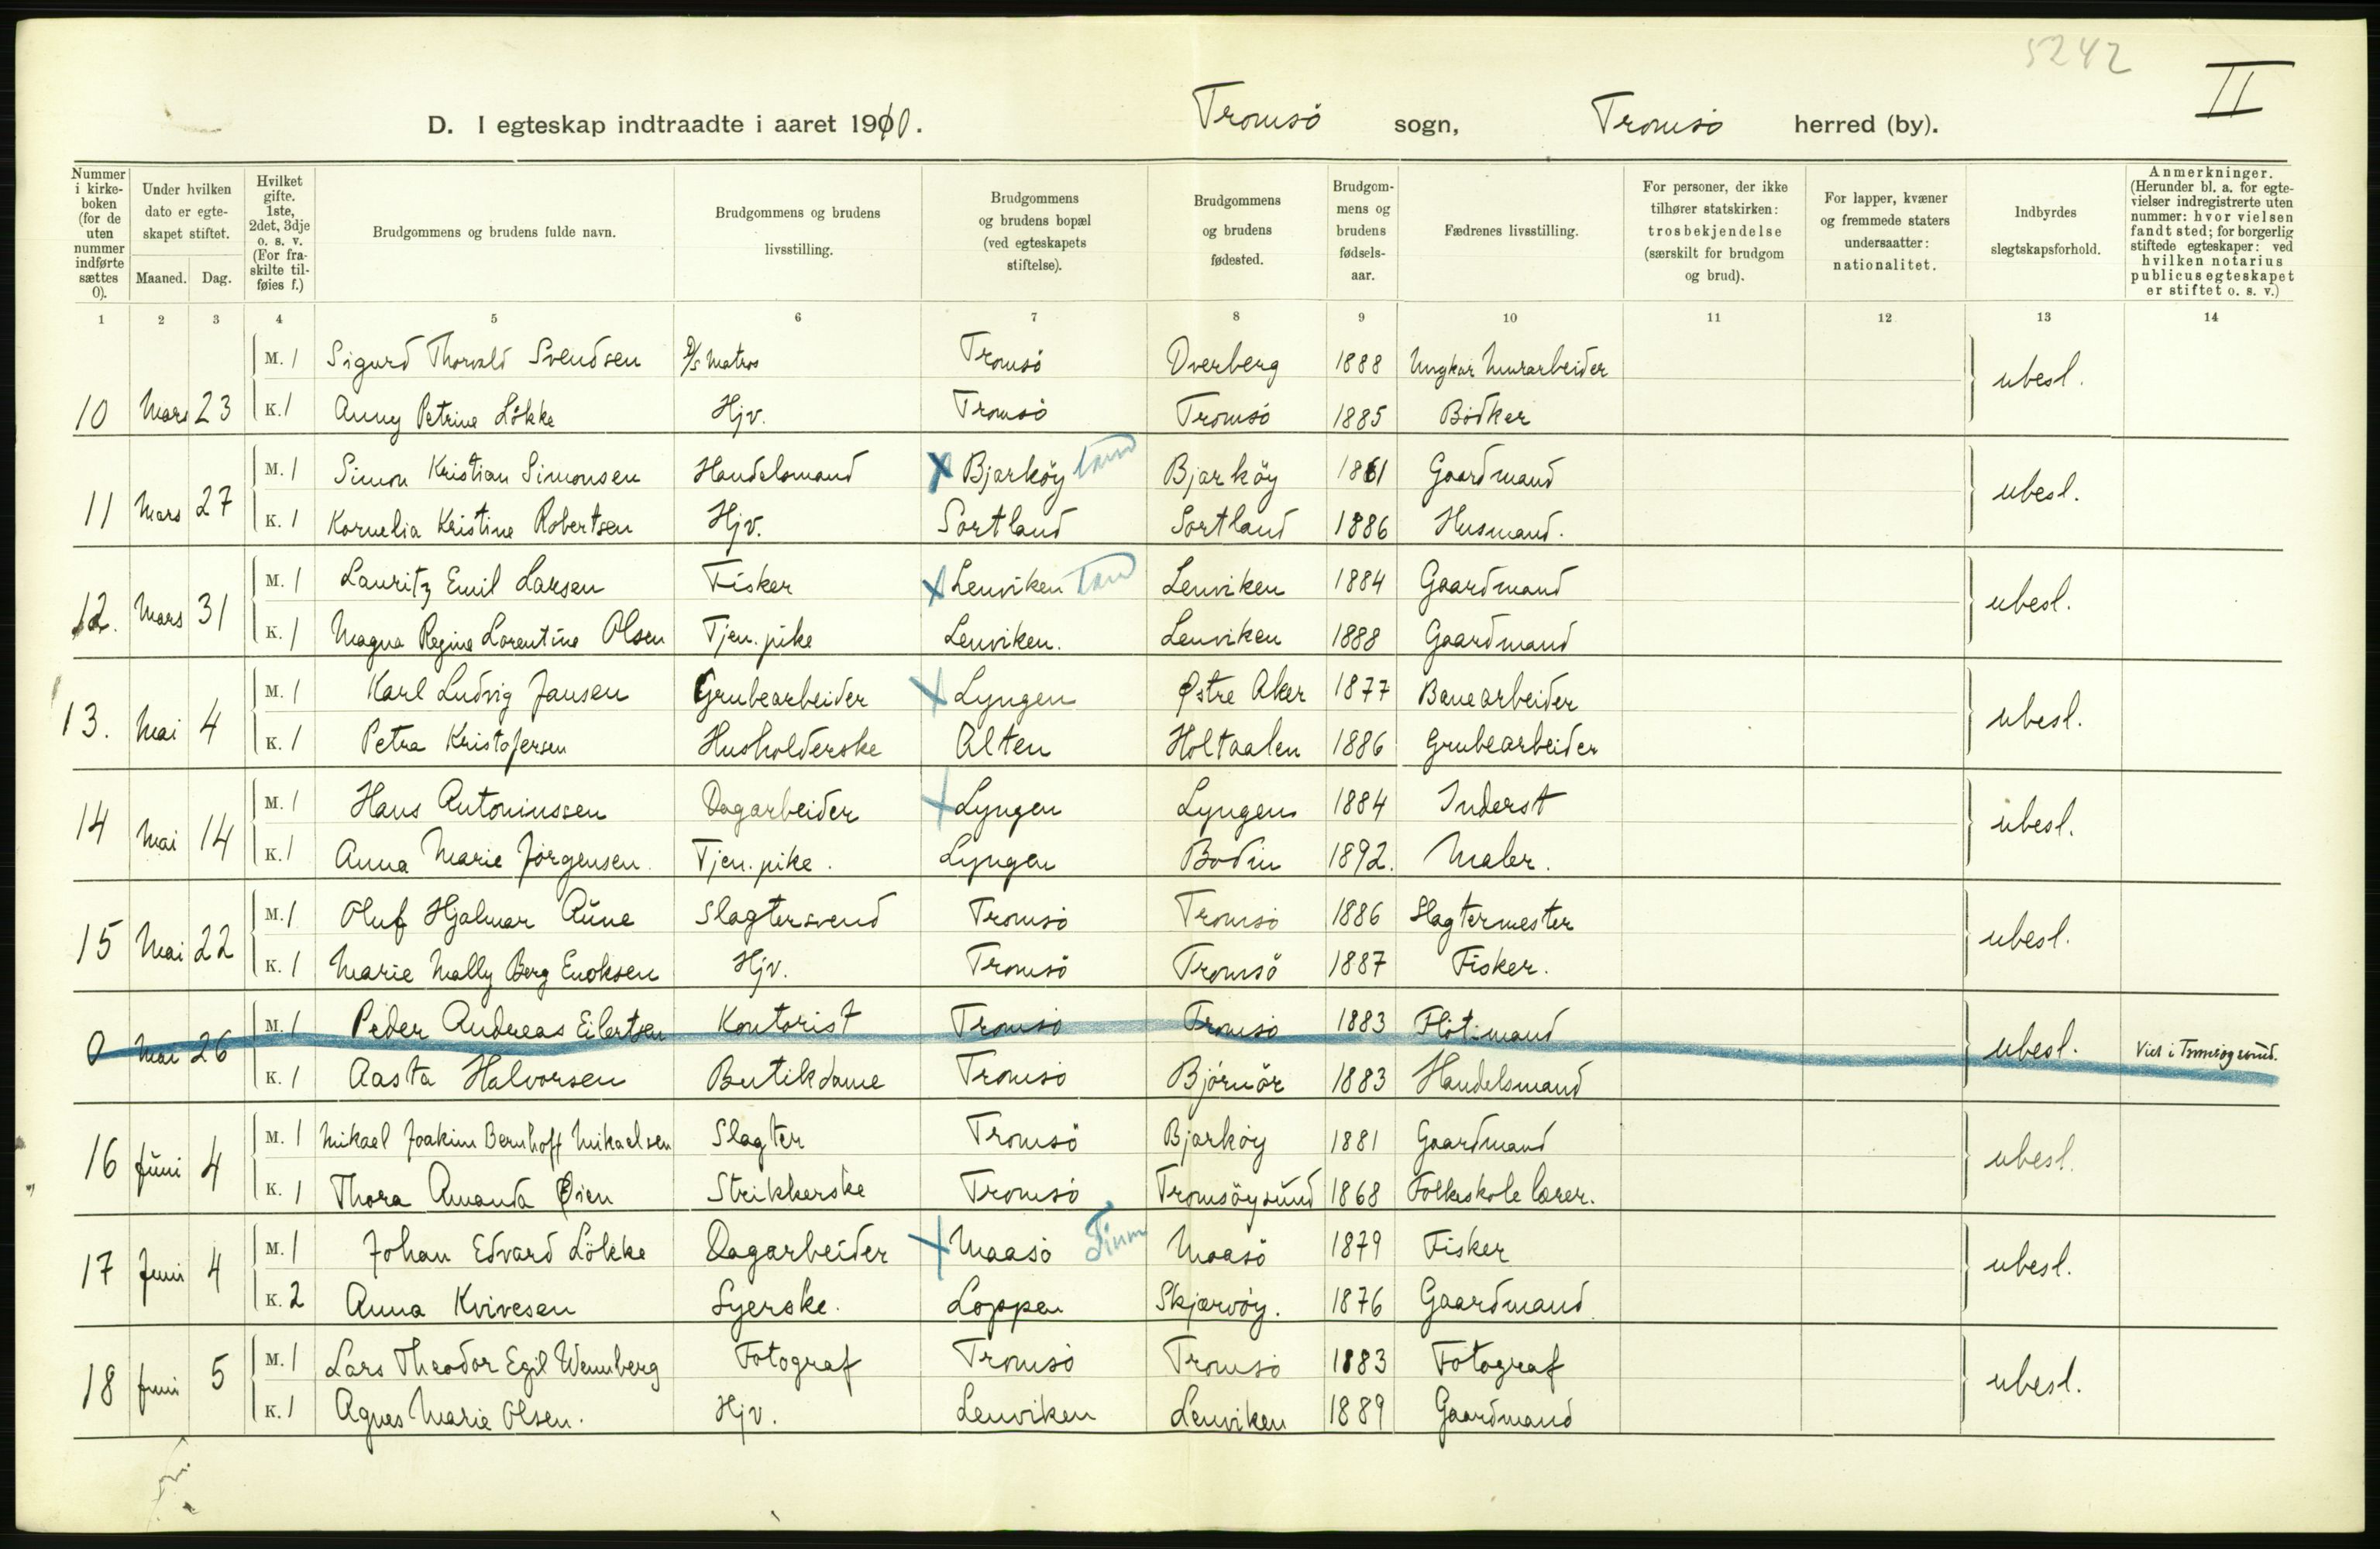 5242
II
D. I egteskap indtraadte i aaret 1910. Tromsö sogn, Tromsö herred (by).
Nummer i kirkeboken (for de uten nummer indførte sættes 0).
Under hvilken dato er egteskapet stiftet.
Maaned. Dag.
Hvilket gifte. 1ste, 2det, 3dje o. s. v. (For fraskilte tilføies f.)
Brudgommens og brudens fulde navn.
Brudgommens og brudens livsstilling.
Brudgommens og brudens bopæl (ved egteskapets stiftelse).
Brudgommens og brudens fødested.
Brudgommens og brudens fødselsaar.
Fædrenes livsstilling.
For personer, der ikke tilhører statskirken: trosbekjendelse (særskilt for brudgom og brud).
For lapper, kvæner og fremmede staters undersaatter: nationalitet.
Indbyrdes slegtskapsforhold.
Anmerkninger. (Herunder bl. a. for egtevielser indregistrerte uten nummer: hvor vielsen fandt sted; for borgerlig stiftede egteskaper: ved hvilken notarius publicus egteskapet er stiftet o. s. v.)
1 2 3 4 5 6 7 8 9 10 11 12 13 14
M. 1 Sigurd Thorvald Svendsen D/s Matros Tromsö Dverberg 1888 Ungkar Murarbeider ubesl.
10 Mars 23 K. 1 Anny Petrine Lökke Hjv. Tromsö Tromsö 1885 Bödker
M. 1 Simon Kristian Simonsen Handelsmand X Bjarköy land Bjarköy 1861 Gaardmand ubesl.
11 Mars 27 K. 1 Kornelia Kristine Robertsen Hjv. Sortland Sortland 1886 Husmand.
M. 1 Lauritz Emil Larsen Fisker X Lenviken land Lenviken 1884 Gaardmand ubesl.
12. Mars 31 K. 1 Magna Regine Lorentine Olsen Tjen. pike Lenviken. Lenviken 1888 Gaardmand
M. 1 Karl Ludvig Jansen Grubearbeider X Lyngen Østre Aker 1877 Banearbeider ubesl.
13. Mai 4 K. 1 Petra Kristofersen Husholderske Alten Holtaalen 1886 Grubearbeider
M. 1 Hans Antoniussen Dagarbeider X Lyngen Lyngen 1884 Inderst ubesl.
14 Mai 14 K. 1 Anna Marie Jørgensen. Tjen. pike. Lyngen Bodin 1892. Maler.
M. 1 Oluf Hjalmar Aune Slagtersvend Tromsö Tromsö 1886 Slagtermester ubesl.
15 Mai 22 K. 1 Marie Mally Berg Enoksen Hjv. Tromsö Tromsö 1887 Fisker.
M. 1 Peder Andreas Eilertsen Kontorist Tromsö Tromsö 1883 Flötimand ubesl.
0 Mai 26 K. 1 Aasta Halvorsen Butikdame Tromsö Björnör 1883 Handelsmand Viet i Tromsøysund.
M. 1 Mikael Joakim Bernhoff Mikaelsen Slagter Tromsö Bjarköy 1881 Gaardmand ubesl.
16 Juni 4 K. 1 Thora Amanda Øien Strikkerske Tromsö Tromsöysund 1868 Folkeskolelærer.
M. 1 Johan Edvard Lökke Dagarbeider X Maasö Finm Maasö 1879 Fisker ubesl.
17 Juni 4 K. 2 Anna Kvivesen Syerske. Loppen Skjærvöy. 1876 Gaardmand.
M. 1 Lars Theodor Egil Wennberg Fotograf Tromsö Tromsö 1883 Fotograf ubesl.
18 Juni 5 K. 1 Agnes Marie Olsen. Hjv. Lenviken Lenviken 1889 Gaardmand